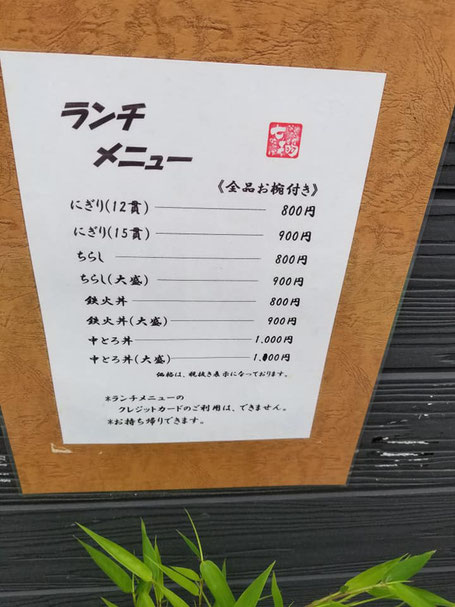 ランチ
メニュー
《全品お椀付き》
にぎり(12貫) 800円
にぎり(15貫) 900円
ちらし 800円
ちらし(大盛) 900円
鉄火丼 800円
鉄火丼(大盛) 900円
中とろ丼 1,000円
中とろ丼(大盛)
価格は、税抜き表示になっております。
*ランチメニューの
クレジットカードのご利用は、できません。
*お持ち帰りできます。